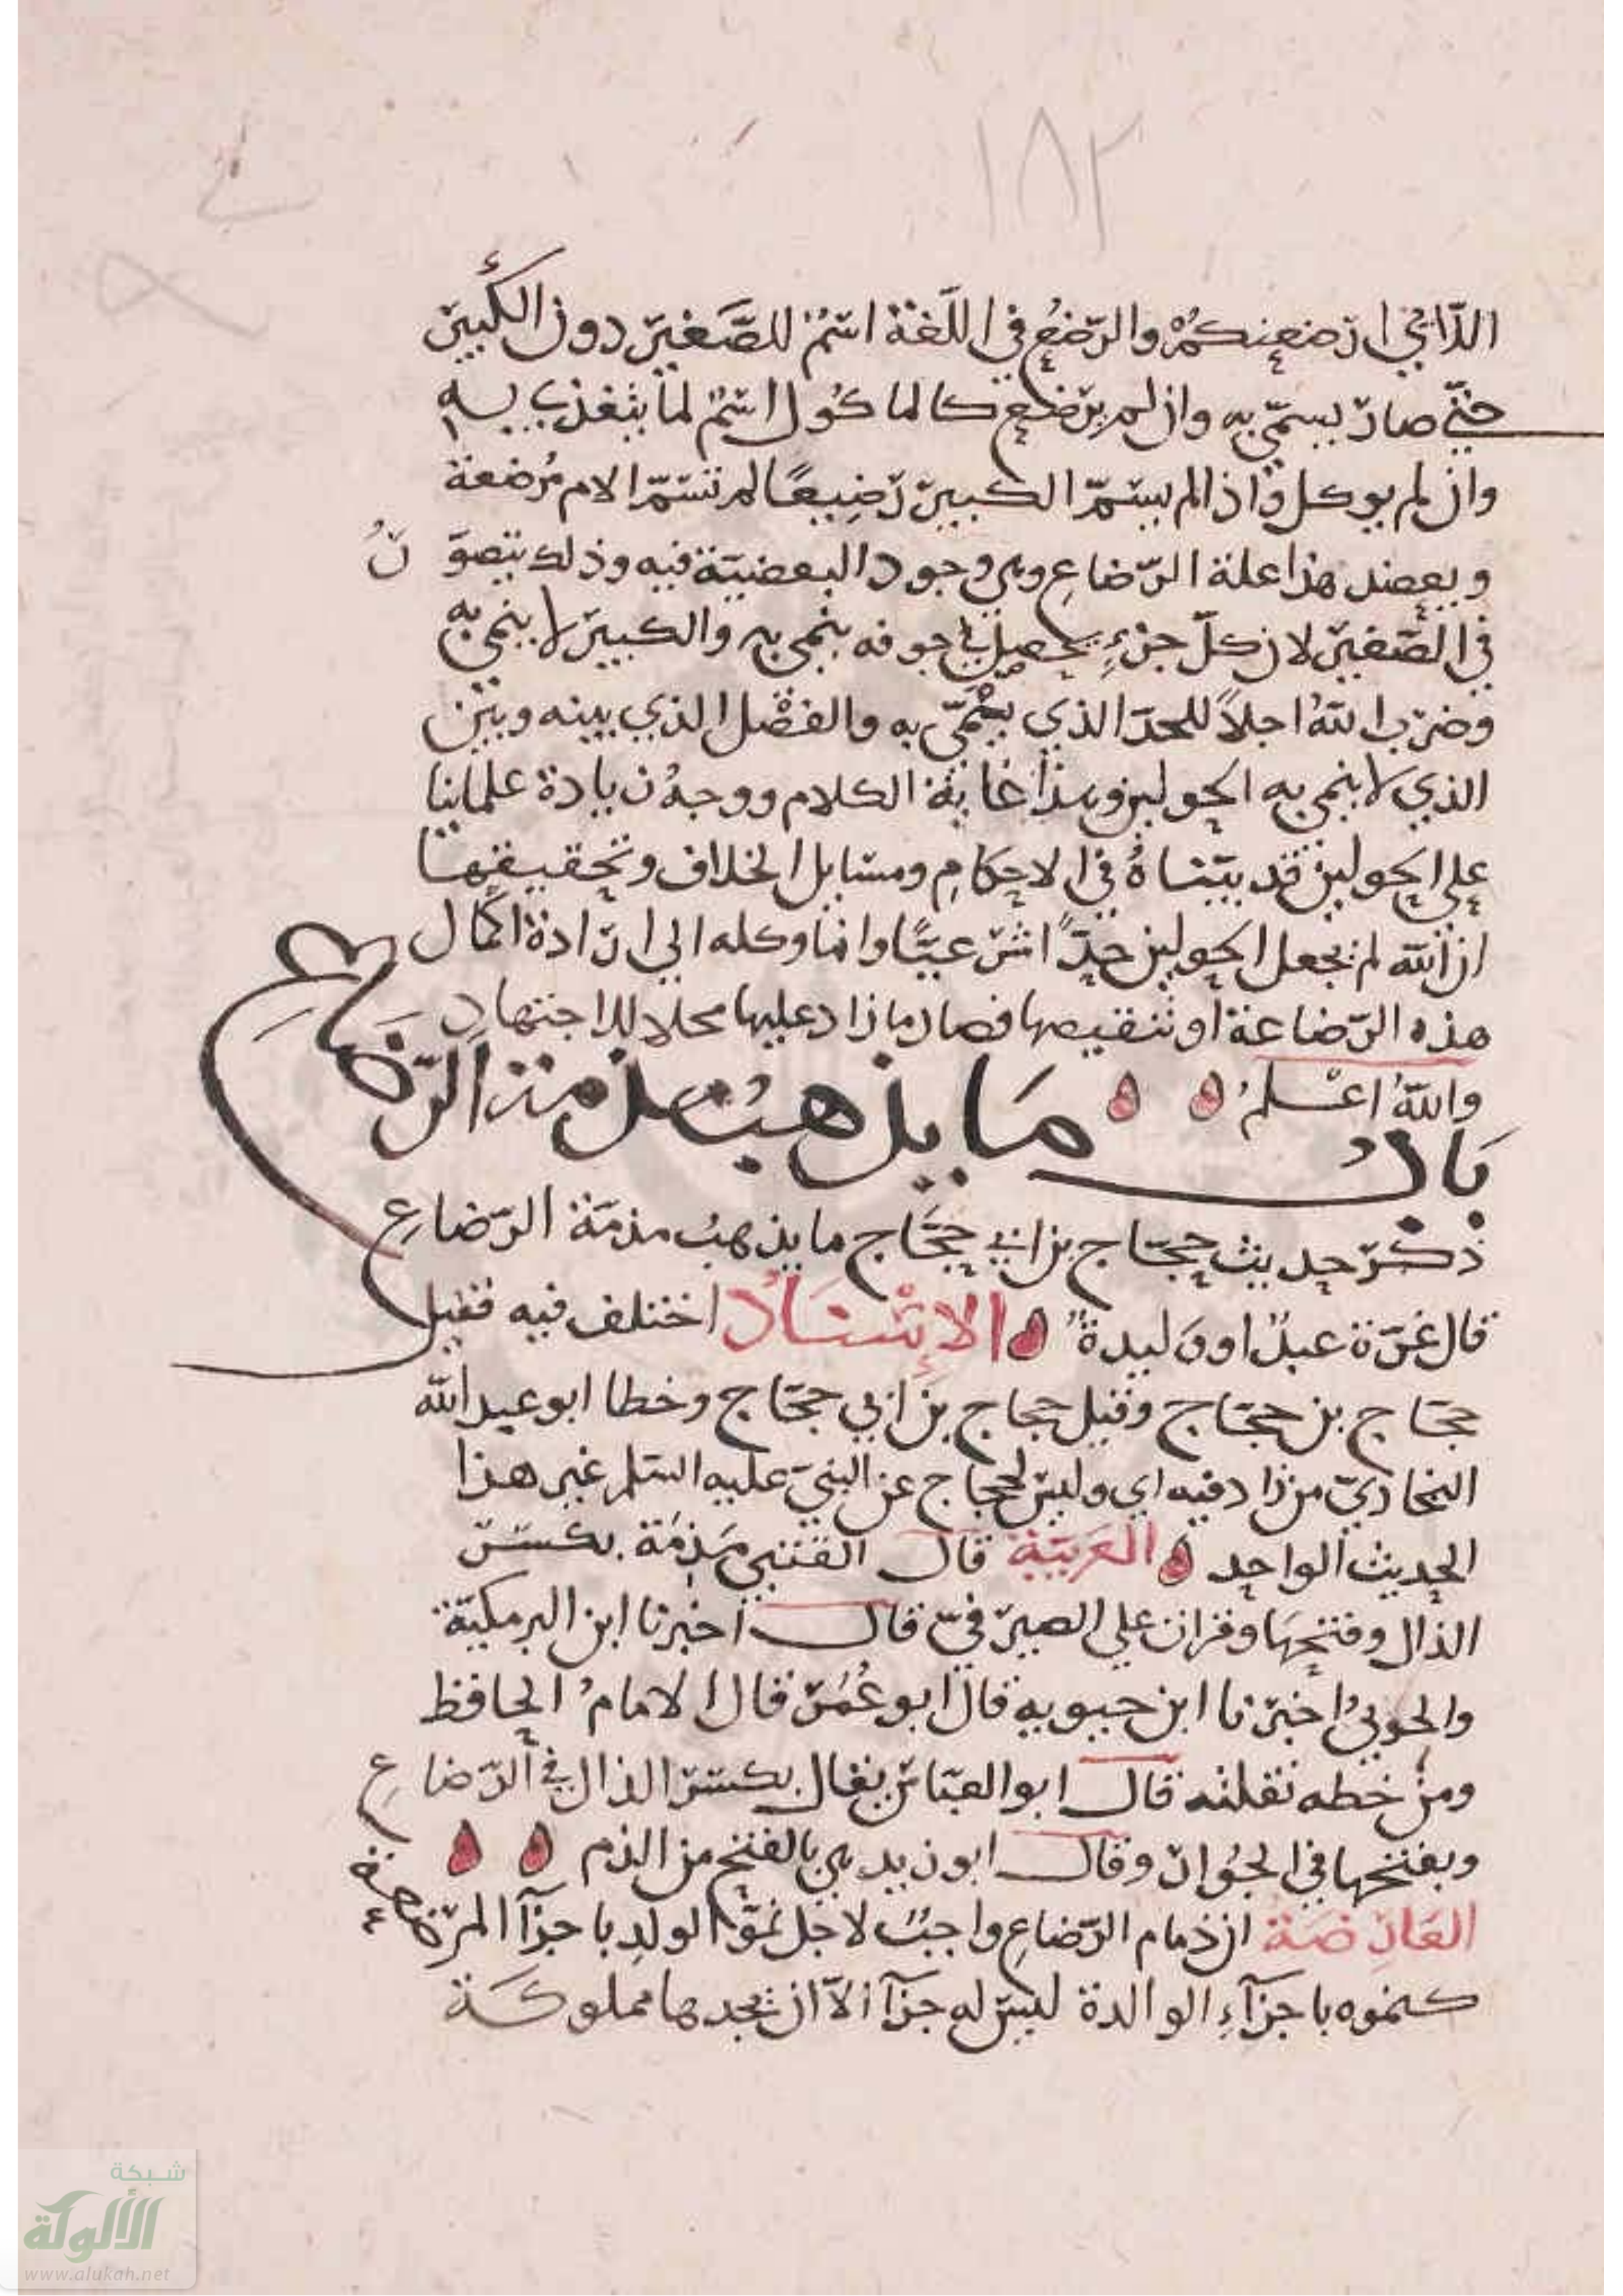 ١٨٢
اللّاتي ارضعنكمْ والرّضعُ في اللّغة اسمٌ للصَّغير دون الكَبير
حتّي صار يسمّي به وان لم يرضع كالماكُول اسمٌ لما يتغذي به
وان لم يوكل واذا لم يسمّ الكبير رَضِيعًا لم تسمّ الام مُرضعة
ويعضد هذا علة الرّضاعِ وهي وجود البعضيّة فيه وذلك يتصوّرُ
في الصَّغير لان كلّ جزءٍ يحصل في جوفه ينمي به والكبير لا ينمي به
وضرب اللهُ اجلاً للحدّ الذي ينمّي به والفصْل الذي بينه وبين
الذي لا ينمي به الحولين وهذا غاية الكلام ووجهُ زيادة علماينا
علي الحولين قد بيّناهُ في الاحكامِ ومسايل الخلاف وتحقيقها
ان الله لم يجعل الحولين حدًّا شرعيًّا وانما وكله الي ارادة اكمال
هذه الرّضاعة او تنقيصها فصار ما زاد عليها محلا للاجتهادِ
واللهُ اعْلمُ
بَابُ مَا يذهبُ مذمة الرّضاع
ذكرَ حديث حجّاج بن ابي حجَّاج ما يذهبُ مذمّة الرّضاعِ
قال غرّة عبدٌ او وَليدةٌ الاِسْنَادُ اختلف فيه فقيل
حجّاج بن حجّاج وقيل حجاج بن ابي حجّاج وخطا ابو عبد الله
البخاريّ من زاد فيه ابي وليس لحجاج عن النبيّ عليه السّلم غير هذا
الحديث الواحد العَربيّة قال القتبي مَذمّة بكسر
الذال وفتحهَا وقرات علي الصيرَفيّ قال اخبرنا ابن البرمكيّة
والحوبيُ اخبرنا ابن حيويه قال ابو عُمَر قال الامامُ الحافظ
ومن خطه نقلته قال ابو العبّاس يقال بكسر الذال في الرّضاعِ
وبفتحها في الجُوار وقال ابو زيد هي بالفتح من الذم
العَارضَة ان ذمام الرّضاعِ واجبٌ لاجل نموّ الولدِ باجزآ المرضعة
كنموه باجزآءِ الوالدة ليس له جزآ الاّ ان يجدها مملوكَة
شبكة
الألوكة
www.alukah.net